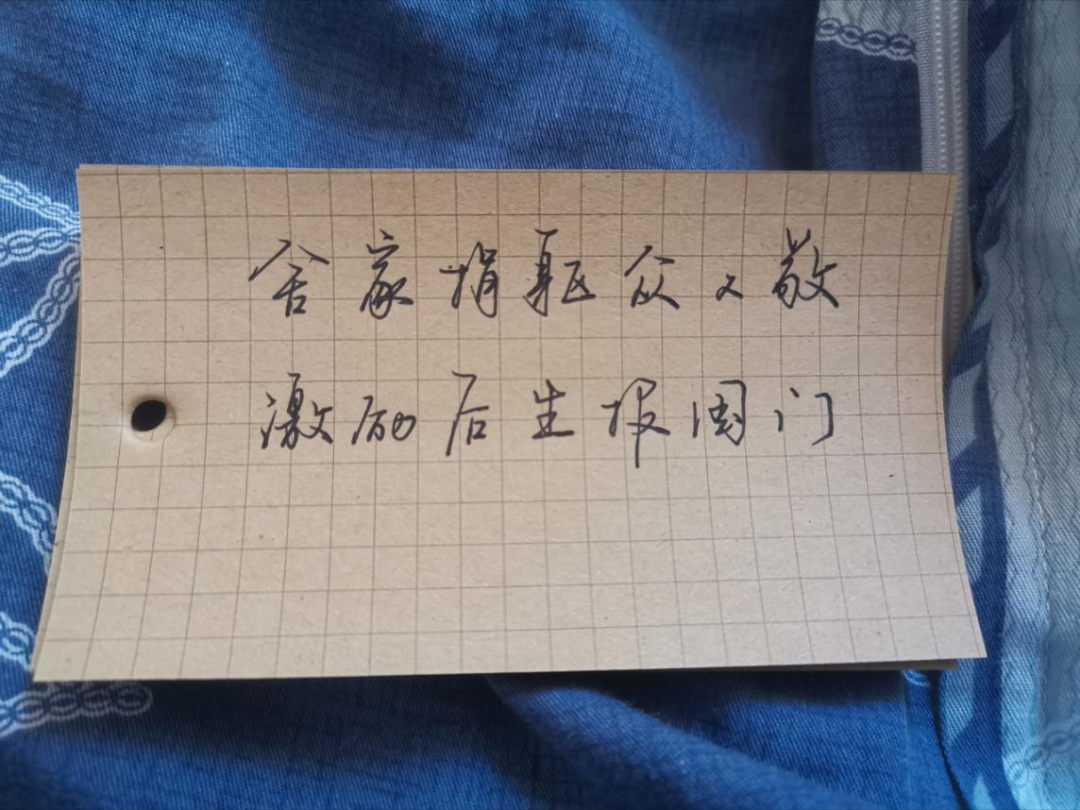 舍家捐躯众人敬
激励后生报国门